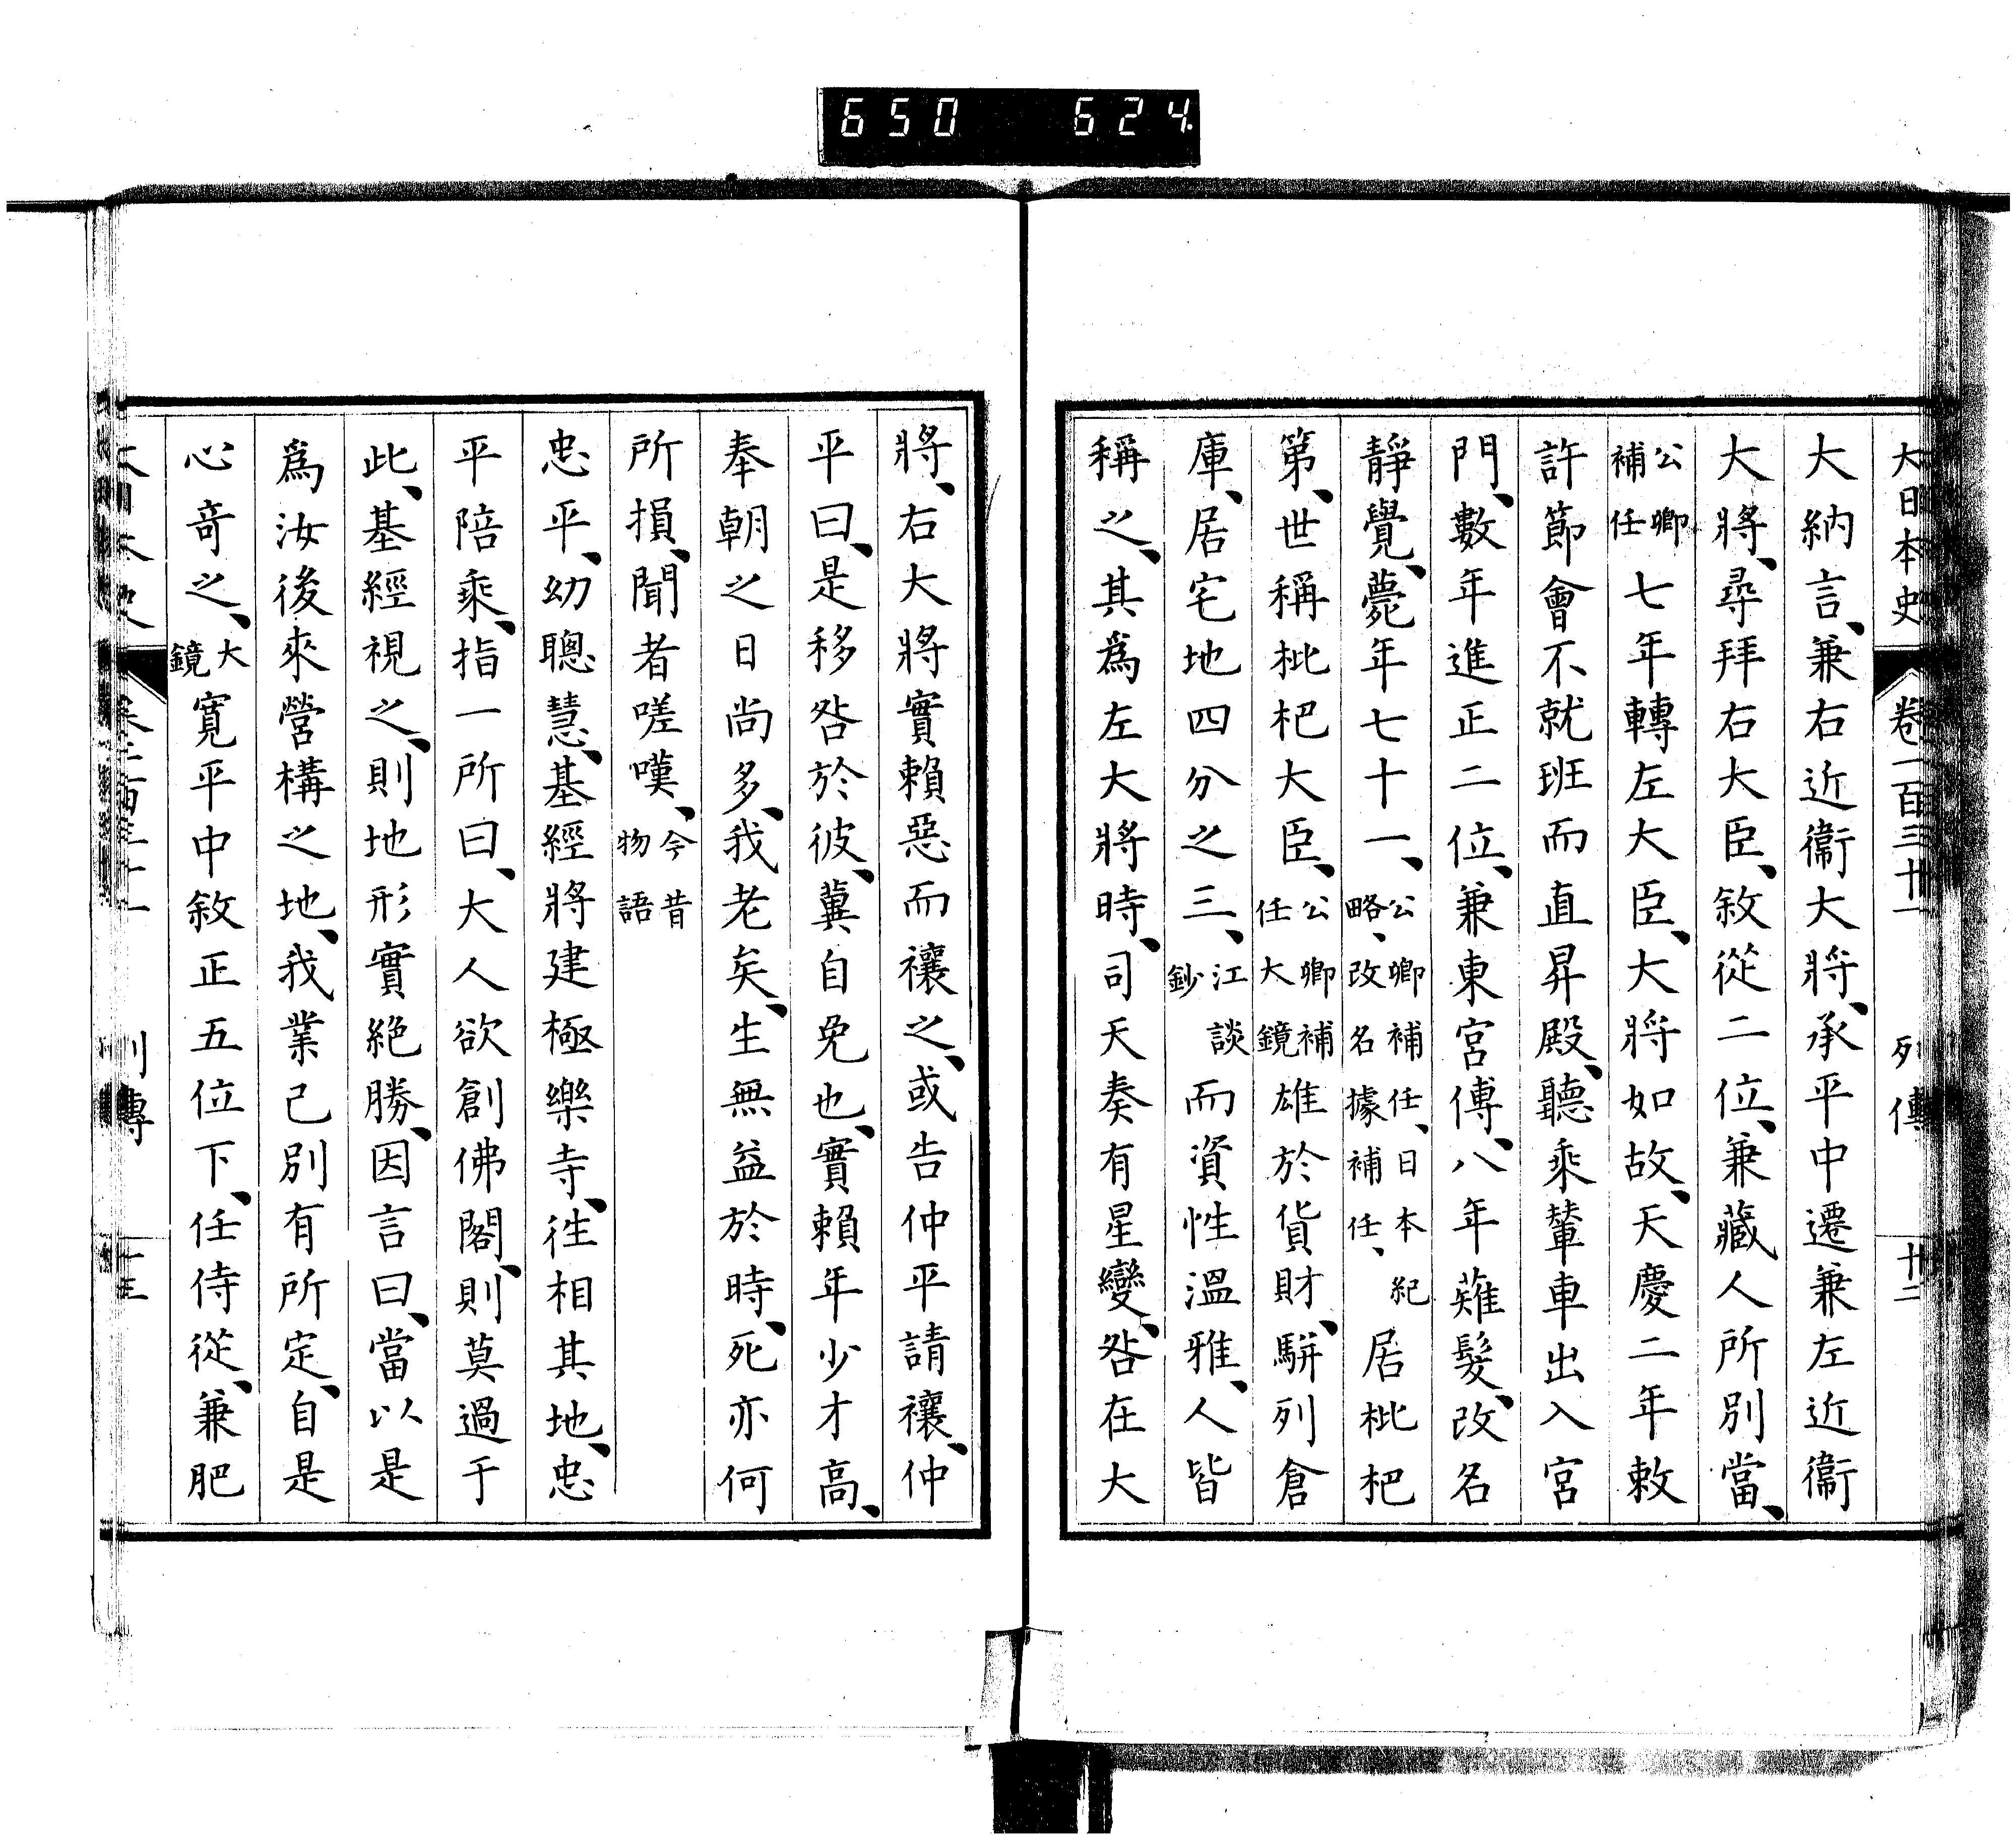 650 624.
大日本史 卷一百三十一 列傳 廿二
大納言、兼右近衞大將、承平中遷兼左近衞
大將、尋拜右大臣、敘從二位、兼藏人所別當、
公卿補任七年轉左大臣、大將如故、天慶二年敕
許節會不就班而直昇殿、聽乘輦車出入宮
門、數年進正二位、兼東宮傅、八年薙髮、改名
靜覺、薨年七十一、公卿補任、日本紀略、改名據補任、居枇杷
第、世稱枇杷大臣、公卿補任大鏡雄於貨財、駢列倉
庫、居宅地四分之三、江談鈔而資性溫雅、人皆
稱之、其爲左大將時、司天奏有星變、咎在大
將、右大將實賴惡而禳之、或告仲平請禳、仲
平曰、是移咎於彼、冀自免也、實賴年少才高、
奉朝之日尚多、我老矣、生無益於時、死亦何
所損、聞者嗟嘆、今昔物語
忠平、幼聰慧、基經將建極樂寺、徃相其地、忠
平陪乘、指一所曰、大人欲創佛閣、則莫過于
此、基經視之、則地形實絕勝、因言曰、當以是
爲汝後來營構之地、我業已別有所定、自是
心竒之、大鏡寬平中敘正五位下、任侍從、兼肥